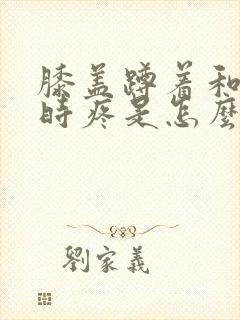 膝盖蹲着和
時疼是怎麼
劉家義